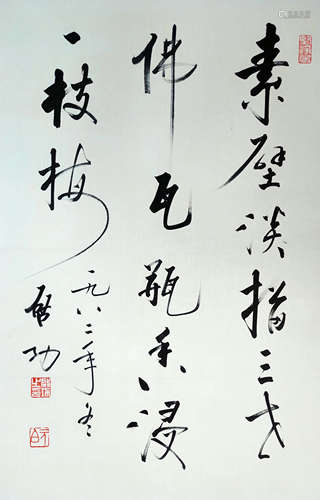 素壁淡描三世
佛瓦瓶香浸
一枝梅
一九八二年冬
启功